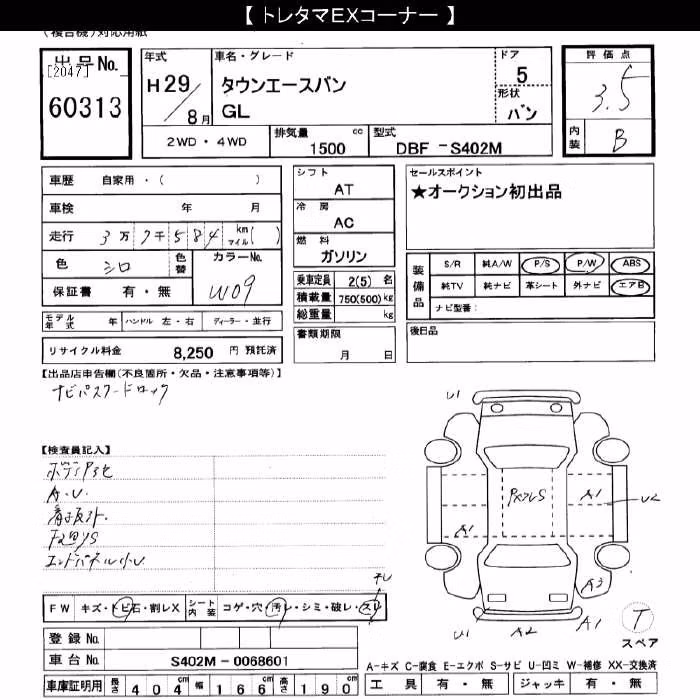 【 トレタマEXコーナー 】
(複合機)対応用紙
出品No.
[2047]
60313
年式
H29/8月
車名・グレード
タウンエースバン
GL
ドア
5
形状
バン
評価点
3.5
内装
B
2WD・4WD
排気量
1500 cc
型式
DBF -S402M
車歴 自家用・( )
車検 年 月
走行 3万7千584 km マイル( )
色 シロ
色替
カラーNo.
W09
保証書 有・無
シフト
AT
冷房
AC
燃料
ガソリン
乗車定員 2(5) 名
積載量 750(500) kg
総重量 kg
セールスポイント
★オークション初出品
装備品
S/R 純A/W P/S P/W ABS
純TV 純ナビ 革シート 外ナビ エアB
ナビ型番:
モデル年式 年 ハンドル 左・右 ディーラー・並行
書類期限
月 日
後日品
リサイクル料金 8,250 円 預託済
【出品店申告欄(不良箇所・欠品・注意事項等)】
ナビパスワードロック
【検査員記入】
A.U.
エンドパネル小U
U1
A1
U2
A1
A3
U1
A2
A1
T
スペア
FW キズ・トビ石・割レX
シート内装 コゲ・穴・汚レ・シミ・破レ・スレ
登録No.
車台No. S402M-0068601
車庫証明用 長さ 404cm 幅 166cm 高さ 190cm
A-キズ C-腐食 E-エクボ S-サビ U-凹ミ W-補修 XX-交換済
工具 有・無 ジャッキ 有・無